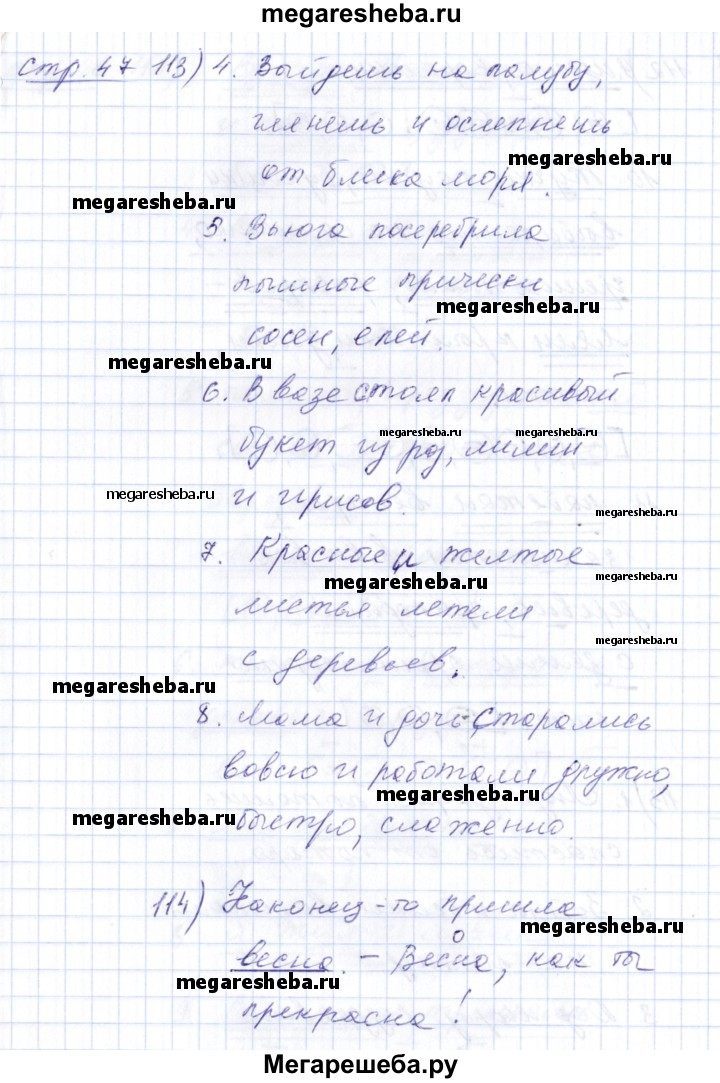 megaresheba.ru
стр. 47 113) 4. Выйдешь на палубу,
глянешь и ослепнешь
megaresheba.ru
от блеска моря.
megaresheba.ru
5. Вьюга посеребрила
пышные прически
megaresheba.ru
сосен, елей.
megaresheba.ru
6. В вазе стоял красивый
megaresheba.ru
букет из роз, лилий
megaresheba.ru
megaresheba.ru
и ирисов.
megaresheba.ru
7. Красные и желтые
megaresheba.ru
megaresheba.ru
листья летели
megaresheba.ru
с деревьев.
megaresheba.ru
8. Мама и дочь старались
вовсю и работали дружно,
megaresheba.ru
megaresheba.ru
быстро, слаженно.
114) Наконец-то пришла
megaresheba.ru
весна. - Весна, как ты
megaresheba.ru
прекрасна!
Мегарешеба.ру